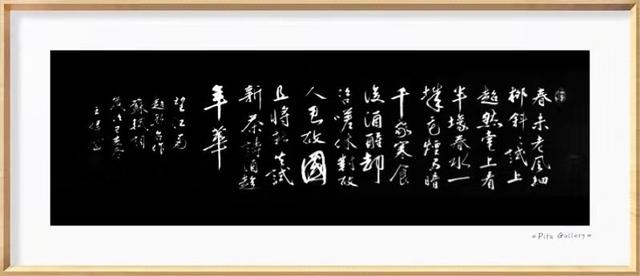 春未老風細
柳斜々試上
超然臺上看
半壕春水一
城花煙雨暗
千家寒食
後酒醒却
咨嗟休對故
人思故國
且將新火試
新茶詩酒趁
年華
望江南
超然台作
蘇軾詞
Pita Gallery